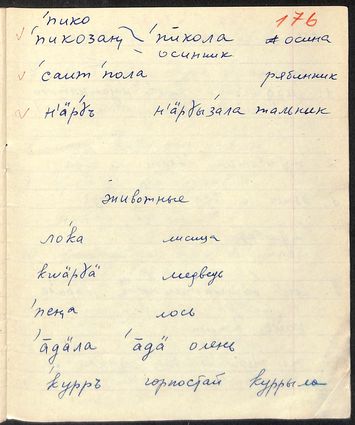 176
ʹпико
ʹпикозан ʹпӣкола осина
осинник
ʹсаит ʹпола рябинник
н'ӓрɣъ н'ӓрɣыʹзала тальник
животные
лоʹка лисица
квӓрɣӓ медведь
ʹпеӊа лось
ʹа̄дӓла ʹа̄дӓ олень
ʹкуррь горностай куррыла